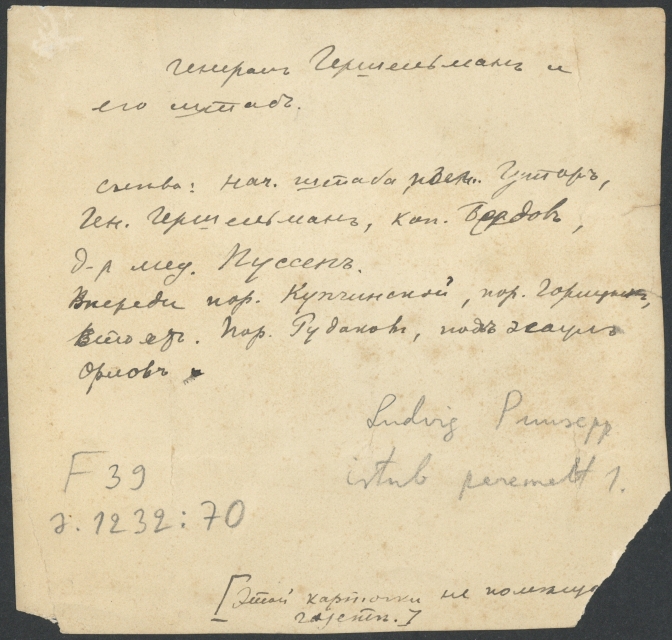 Генералъ Гершельманъ и
его штабъ.
Слева: нач. штаба, Гуторъ,
Ген. Гершельманъ, кап. Бордовъ,
д-р мед. Пуссепъ.
Впереди пор. Купчинской, пор.
Стоятъ. Пор. Гудаковъ, подъ эсаулъ
Орловъ
Ludvig Puusepp
istub paremalt 1.
F 39
s. 1232:70
[Этой карточки не